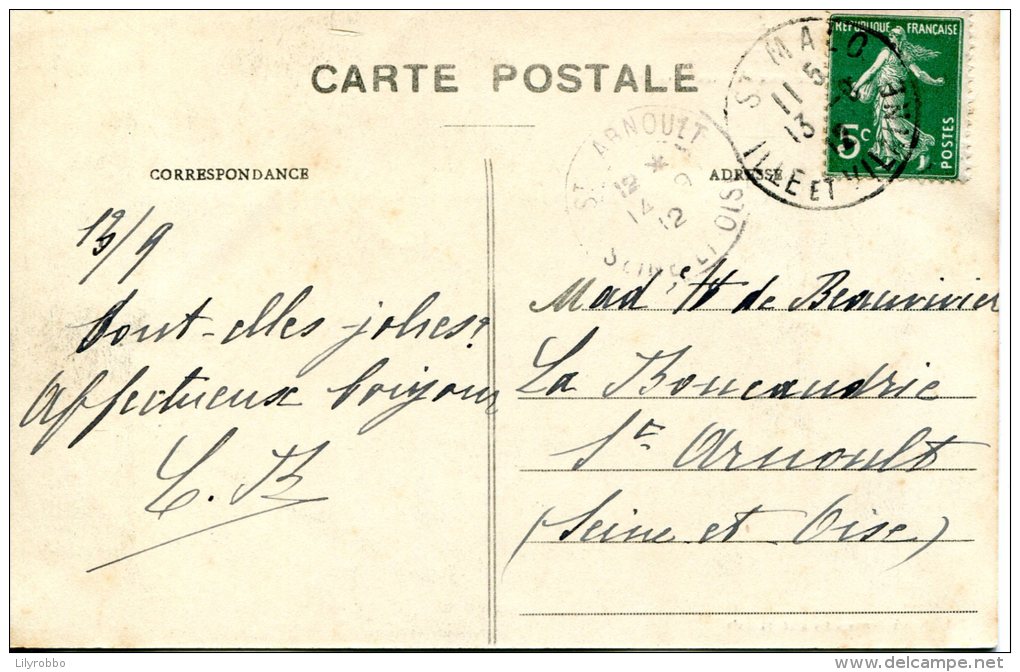 CARTE POSTALE
RÉPUBLIQUE FRANÇAISE
5c
POSTES
ST MALO
11 5
13 - 9
12
ILLE ET VILAINE
ST ARNOULT
12
14 9
12
SEINE ET OISE
CORRESPONDANCE
13/9
Sont-elles jolies?
Affectueux bonjour
C. B
ADRESSE
Mad H de Beauvivier
La Boucaudrie
St Arnoult
(Seine et Oise)
Lilyrobbo
delcampe.net